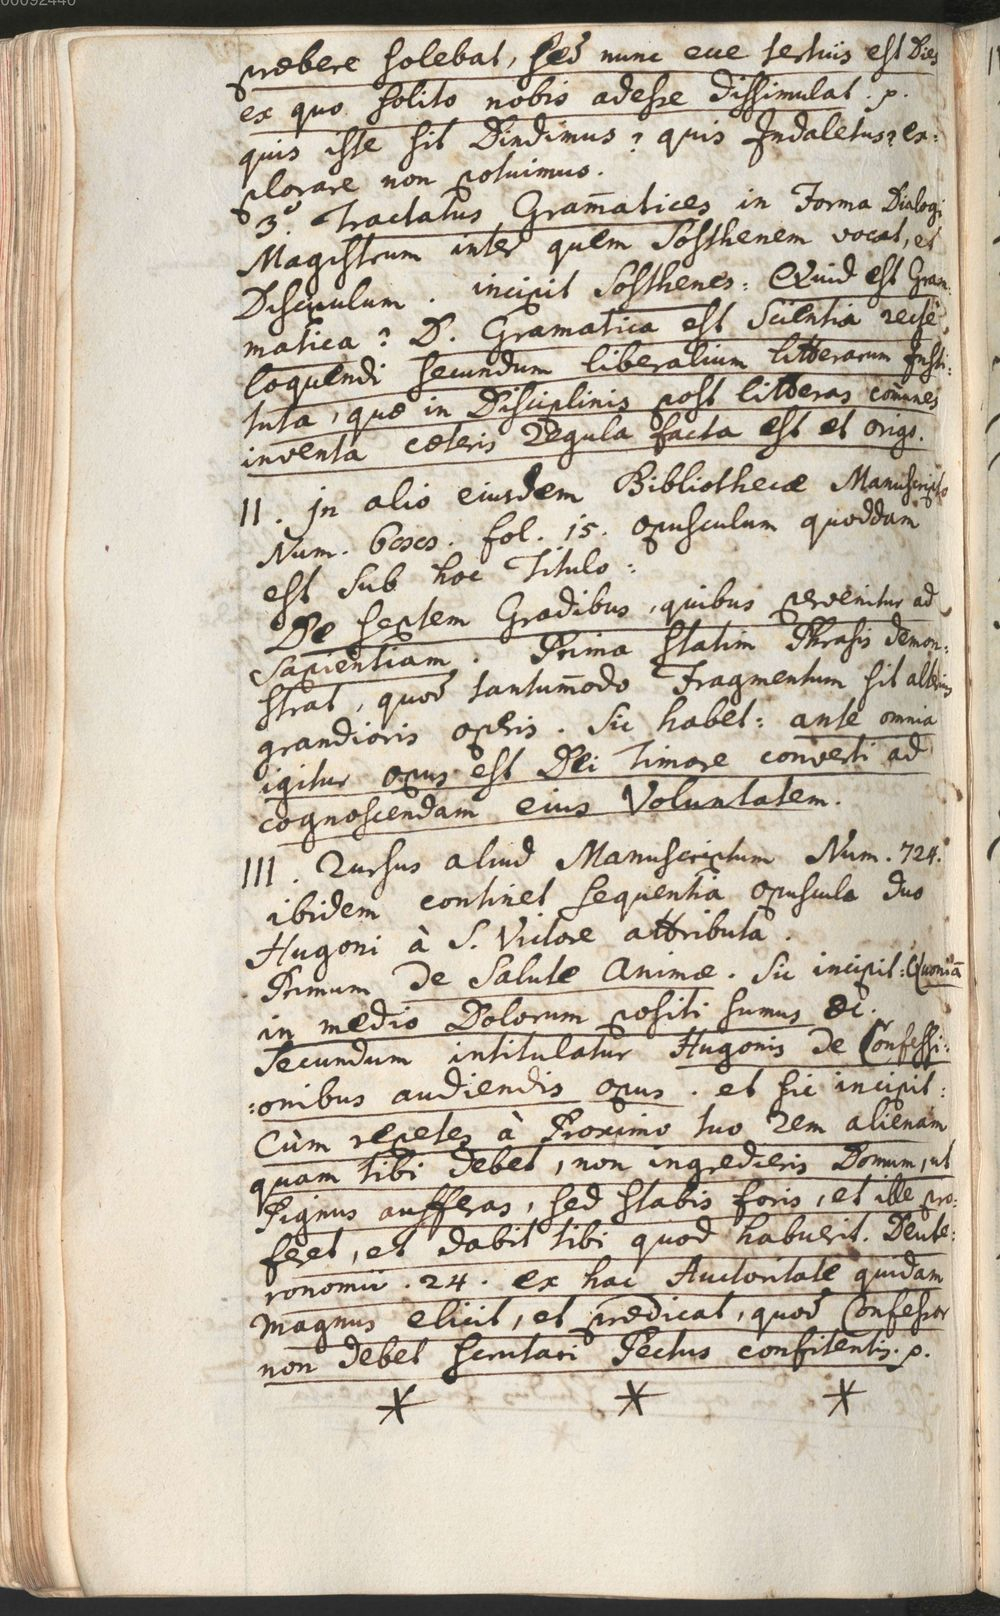 00092440
præbere solebat, sed nunc eue tertius est Dies
ex quo solito nobis adesse dissimulat. p.
quis iste sit Dindimus? quis Indaletus? ex:
plorare non potuimus.
3º. Tractatus Gram̄atices in Forma Dialogi
Magistrum inter quem Sosthenem vocat, et
Discipulum. incipit Sosthenes: Quid est Gram:
matica? D. Gramatica est Scientia rectè
loquendi secundum liberalium litterarum Insti:
tuta, quæ in Disciplinis post litteras com̄unes
inventa cæteris Regula facta est et origo.
II. In alio eiusdem Bibliothecæ Manuscripto
Num. fol. 15. opusculum quoddam
est sub hoc Titulo:
De septem Gradibus, quibus pervenitur ad
Sapientiam. Prima statim Phrasis demon:
strat, quod tantum̄odo Fragmentum sit alterius
grandioris operis. Sic habet: ante omnia
igitur opus est Dei Timore converti ad
cognoscendam eius Voluntatem.
III. Rursus aliud Manuscriptum Num. 724.
ibidem continet sequentia opuscula duo
Hugoni à S. Victore attributa.
Primum De Salute Animæ. Sic incipit: Quoniā
in medio Dolorum positi sumus &c.
Secundum intitulatur Hugonis De Confessi:
:onibus audiendis opus. et sic incipit:
Cùm repetes à Proximo tuo rem alienam
quam tibi debet, non ingredieris Domum, ut
Pignus aufferas, sed stabis foris, et ille pro:
feret, et dabit tibi quod habuerit. Deute:
ronomii. 24. ex hac Auctoritate quidam
magnus elicit, et prædicat, quod Confessor
non debet scrutari Pectus confitentis. p.
* * *